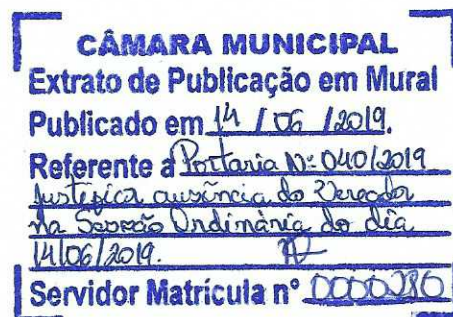 CÂMARA MUNICIPAL
Extrato de Publicação em Mural
Publicado em 14 / 06 / 2019.
Referente a Portaria Nº 040/2019
Justifica ausência do Vereador
na Sessão Ordinária do dia
14/06/2019.
Servidor Matrícula nº 0000286